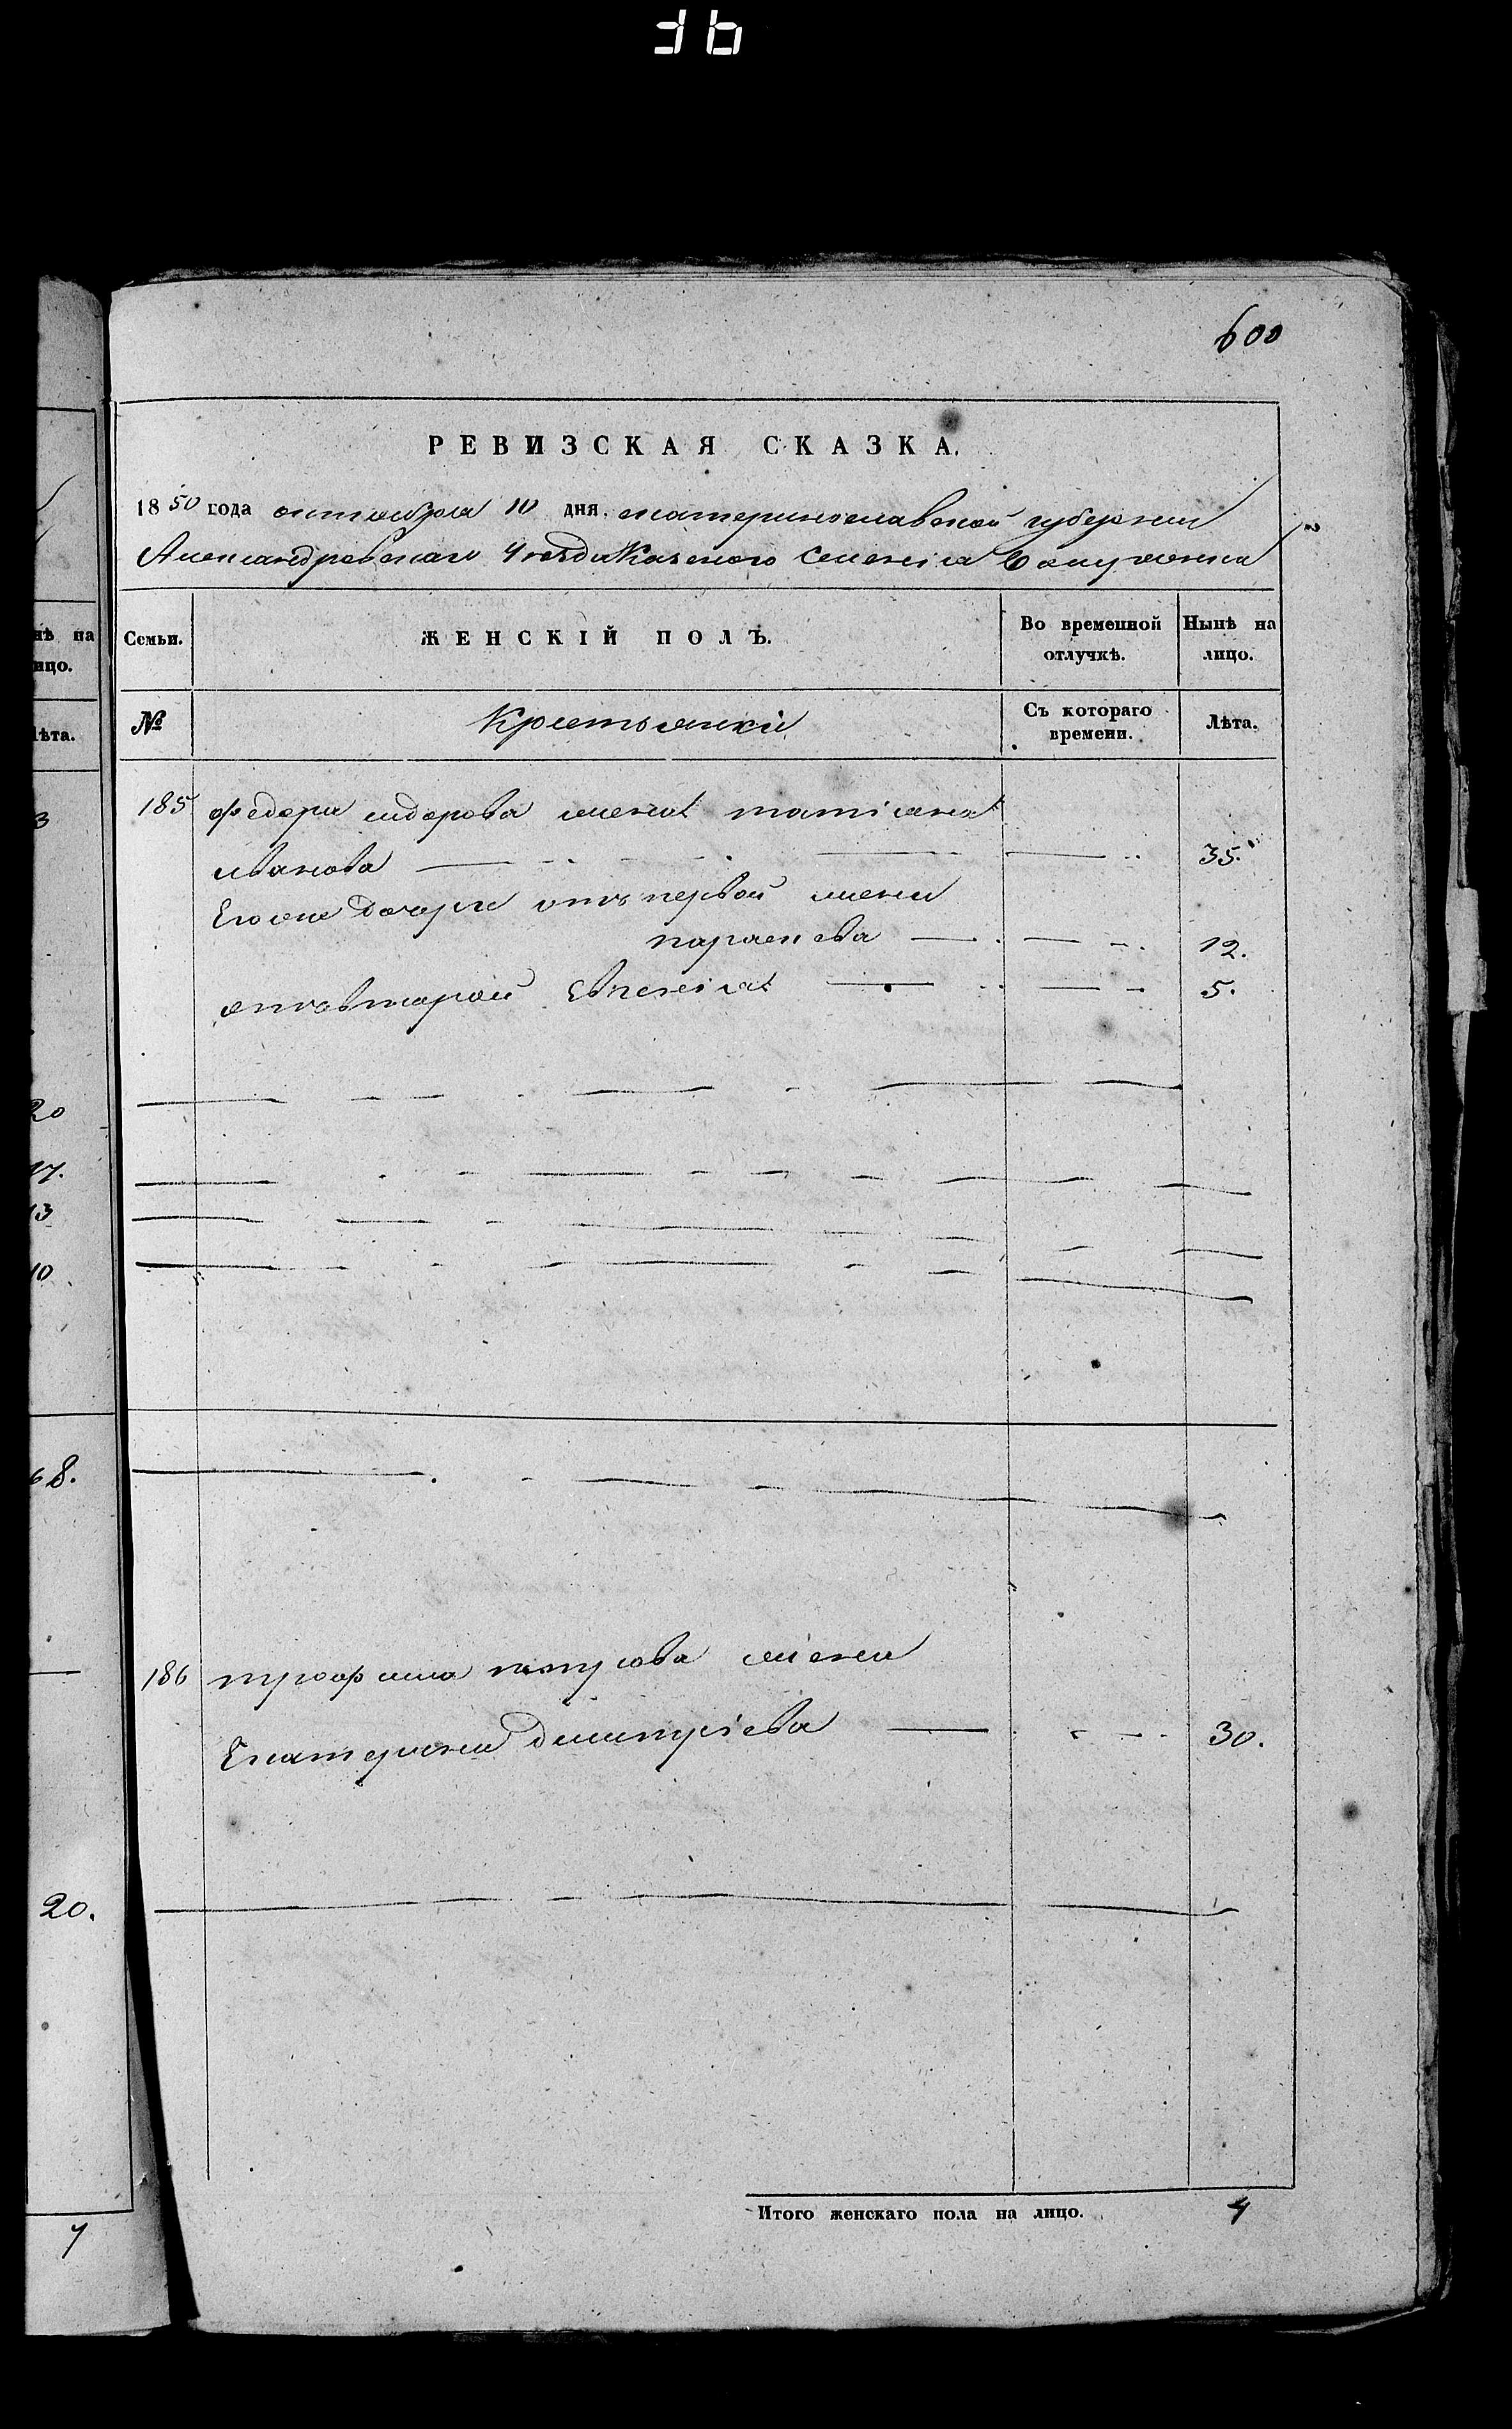 36
600
РЕВИЗСКАЯ СКАЗКА.
1850 года октября 10 дня. екатеринославской губернии
Александровскаго Уезда Казеного Селенія
Семьи. ЖЕНСКІЙ ПОЛЪ. Во временной отлучкѣ. Нынѣ на лицо.
№ Крестьянки Съ котораго времени. Лѣта.
185 федора сидорова жена татіяна
иванова 35.
Его же дочери отъ первой жены
параскева 12.
отъ второй Евгенія 5.
186 трофима жена
Екатерина Дмитріева 30.
Итого женскаго пола на лицо. 4
нѣ на
ицо.
лѣта.
3
20
17.
13
10
68.
20.
7